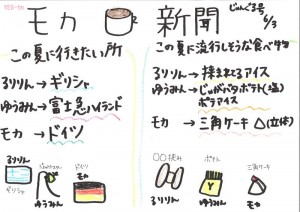 モカ 新聞
じゅんご3号
6/3
この夏に行きたい所
るりりん→ギリシャ
ゆうみん→富士急ハイランド
モカ→ドイツ
るりりん
ギリシャ
ゆうみん
ドイツ
モカ
この夏に流行しそうな食べ物
るりりん→挟まれてるアイス
ゆうみん→じゃがバタポテト(塩)
ポテアイス
モカ → 三角ケーキ△(立体)
○○挟み
るりりん
ポテト
ゆうみん
三角ケーキ
モカ